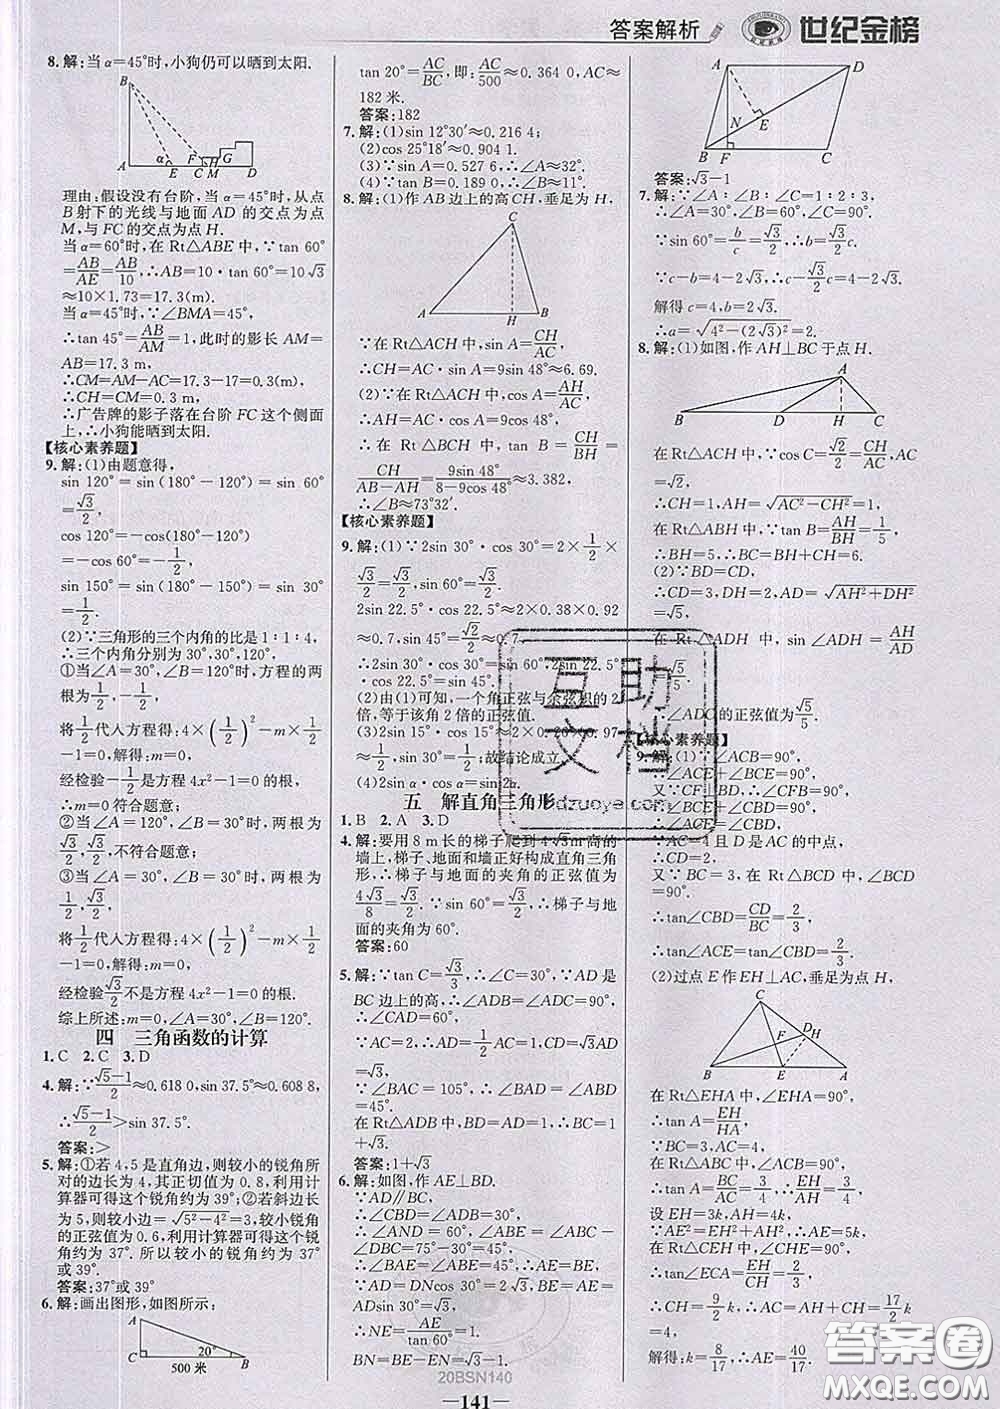 答案解析
世纪金榜
8. 解:当 α=45°时,小狗仍可以晒到太阳.
B
A
α
F
G
H
E
C M
D
理由:假设没有台阶,当 α=45°时,从点
B 射下的光线与地面 AD 的交点为点
M,与 FC 的交点为点 H.
当 α=60°时,在 Rt△ABE 中,∵tan 60°
=AB/AE=AB/10,∴AB=10·tan 60°=10√3
≈10×1.73=17.3(m).
当 α=45°时,∵∠BMA=45°,
∴tan 45°=AB/AM=1,此时的影长 AM=
AB=17.3 m,
∴CM=AM-AC=17.3-17=0.3(m),
∴CH=CM=0.3 m,
∴广告牌的影子落在台阶 FC 这个侧面
上,∴小狗能晒到太阳.
【核心素养题】
9. 解:(1)由题意得,
sin 120°=sin(180°-120°)=sin 60°=
√3/2,
cos 120°=-cos(180°-120°)
=-cos 60°=-1/2,
sin 150°=sin(180°-150°)=sin 30°
=1/2.
(2)∵三角形的三个内角的比是 1∶1∶4,
∴三个内角分别为 30°,30°,120°,
①当∠A=30°,∠B=120°时,方程的两
根为1/2,-1/2,
将1/2代入方程得:4×(1/2)²-m×1/2
-1=0,解得:m=0,
经检验-1/2是方程 4x²-1=0 的根,
∴m=0 符合题意;
②当∠A=120°,∠B=30°时,两根为
√3/2,√3/2,不符合题意;
③当∠A=30°,∠B=30°时,两根为1/2,
√3/2,
将1/2代入方程得:4×(1/2)²-m×1/2
-1=0,解得:m=0,
经检验√3/2不是方程 4x²-1=0 的根.
综上所述:m=0,∠A=30°,∠B=120°.
四 三角函数的计算
1. C 2. C 3. D
4. 解:∵(√5-1)/2≈0.618 0,sin 37.5°≈0.608 8,
∴(√5-1)/2>sin 37.5°.
答案:>
5. 解:①若 4,5 是直角边,则较小的锐角所
对的边长为 4,其正切值为 0.8,利用计
算器可得这个锐角约为 39°;②若斜边长
为 5,则较小边=√(5²-4²)=3,较小锐角
的正弦值为 0.6,利用计算器可得这个锐
角约为 37°. 所以较小的锐角约为 37°
或 39°.
答案:37°或 39°
6. 解:画出图形,如图所示:
A
C
20°
B
500 米
tan 20°=AC/BC,即:AC/500≈0.364 0,AC≈
182 米.
答案:182
7. 解:(1)sin 12°30′≈0.216 4;
(2)cos 25°18′≈0.904 1.
(3)∵sin A=0.527 6,∴∠A≈32°.
(4)∵tan B=0.189 0,∴∠B≈11°.
8. 解:(1)作 AB 边上的高 CH,垂足为 H,
C
A
H
B
∵在 Rt△ACH 中,sin A=CH/AC,
∴CH=AC·sin A=9sin 48°≈6.69.
(2)∵在 Rt△ACH 中,cos A=AH/AC,
∴AH=AC·cos A=9cos 48°,
∴在 Rt△BCH 中,tan B=CH/BH=
CH/(AB-AH)=9sin 48°/(8-9cos 48°)≈3.382,
∴∠B≈73°32′.
【核心素养题】
9. 解:(1)∵2sin 30°·cos 30°=2×1/2×
√3/2=√3/2≈0.87,sin 60°=√3/2≈0.87,
2sin 22.5°·cos 22.5°≈2×0.38×0.92
≈0.7,sin 45°=√2/2≈0.7,
∴2sin 30°·cos 30°=sin 60°,2sin 22.5°
·cos 22.5°=sin 45°.
(2)由(1)可知,一个角正弦与余弦积的 2
倍,等于该角 2 倍的正弦值.
(3)2sin 15°·cos 15°≈2×0.26×0.97≈
1/2,sin 30°=1/2,故结论成立.
(4)2sin α·cos α=sin 2α.
五 解直角三角形
1. B 2. A 3. D
4. 解:要用 8 m 长的梯子爬到 4√3 m高的
墙上,梯子、地面和墙正好构成直角三角
形,∴梯子与地面的夹角的正弦值为
4√3/8=√3/2,∵sin 60°=√3/2,∴梯子与地
面的夹角为 60°.
答案:60
5. 解:∵tan C=√3/3,∴∠C=30°,∵AD是
BC 边上的高,∴∠ADB=∠ADC=90°,
∴∠CAD=60°,AD=1/2AC=1/2×2=1,
∵∠BAC=105°,∴∠BAD=∠ABD
=45°.
在 Rt△ADB 中,AD=BD=1,∴BC=
1+√3.
答案:1+√3
6. 解:如图,作 AE⊥BD.
∵AD∥BC,
∴∠CBD=∠ADB=30°,
∴∠AND=60°,∠ABE=∠ABC-
∠DBC=75°-30°=45°,
∴∠BAE=∠ABE=45°,
∵AD=DNcos 30°=2√3,BE=AE=
ADsin 30°=√3,
∴NE=AE/tan60°=1,
BN=BE-NE=√3-1.
A
D
N
E
B
F
C
答案:√3-1
7. 解:∵∠A∶∠B∶∠C=1∶2∶3,
∴∠A=30°,∠B=60°,∠C=90°.
∵sin 60°=b/c=√3/2,∴b=√3/2c.
∵c-b=4-2√3,∴c-√3/2c=4-2√3,
解得 c=4,b=2√3.
∴a=√(4²-(2√3)²)=2.
8. 解:(1)如图,作 AH⊥BC 于点 H.
A
B
D
H
C
在 Rt△ACH 中,∵cos C=√2/2=CH/AC,AC
=√2,
∴CH=1,AH=√(AC²-CH²)=1,
在 Rt△ABH 中,∵tan B=AH/BH=1/5,
∴BH=5,∴BC=BH+CH=6.
(2)∵BD=CD,
∴CD=3,DH=2,AD=√(AH²+DH²)
=√5.
在 Rt△ADH 中,sin∠ADH=AH/AD
=√5/5.
∴∠ADC的正弦值为√5/5.
【核心素养题】
9. 解:(1)∵∠ACB=90°,
∴∠ACE+∠BCE=90°,
∴∠BCE+∠CBD=90°,
∴∠ACE=∠CBD,
∵AC=4 且 D 是 AC 的中点,
∴CD=2.
又∵BC=3,在 Rt△BCD 中,
又∵∠BCD=90°.
∴tan∠CBD=CD/BC=2/3,
∴tan∠ACE=tan∠CBD=2/3.
(2)过点 E 作 EH⊥AC,垂足为点 H,
C
D
H
F
B
E
A
在 Rt△EHA 中,∠EHA=90°,
∴tan A=EH/HA.
∵BC=3,AC=4,
在 Rt△ABC 中,∠ACB=90°,
∴tan A=BC/AC=3/4,∴EH/AH=3/4,
设 EH=3k,AH=4k,
∵AE²=EH²+AH²,∴AE=5k,
在 Rt△CEH 中,∠CHE=90°,
∴tan∠ECA=EH/CH=2/3,
∴CH=9/2k,∴AC=AH+CH=17/2k
=4,
解得:k=8/17,∴AE=40/17.
互助
文档
答案圈
MXQE.COM
20BSN140
—141—